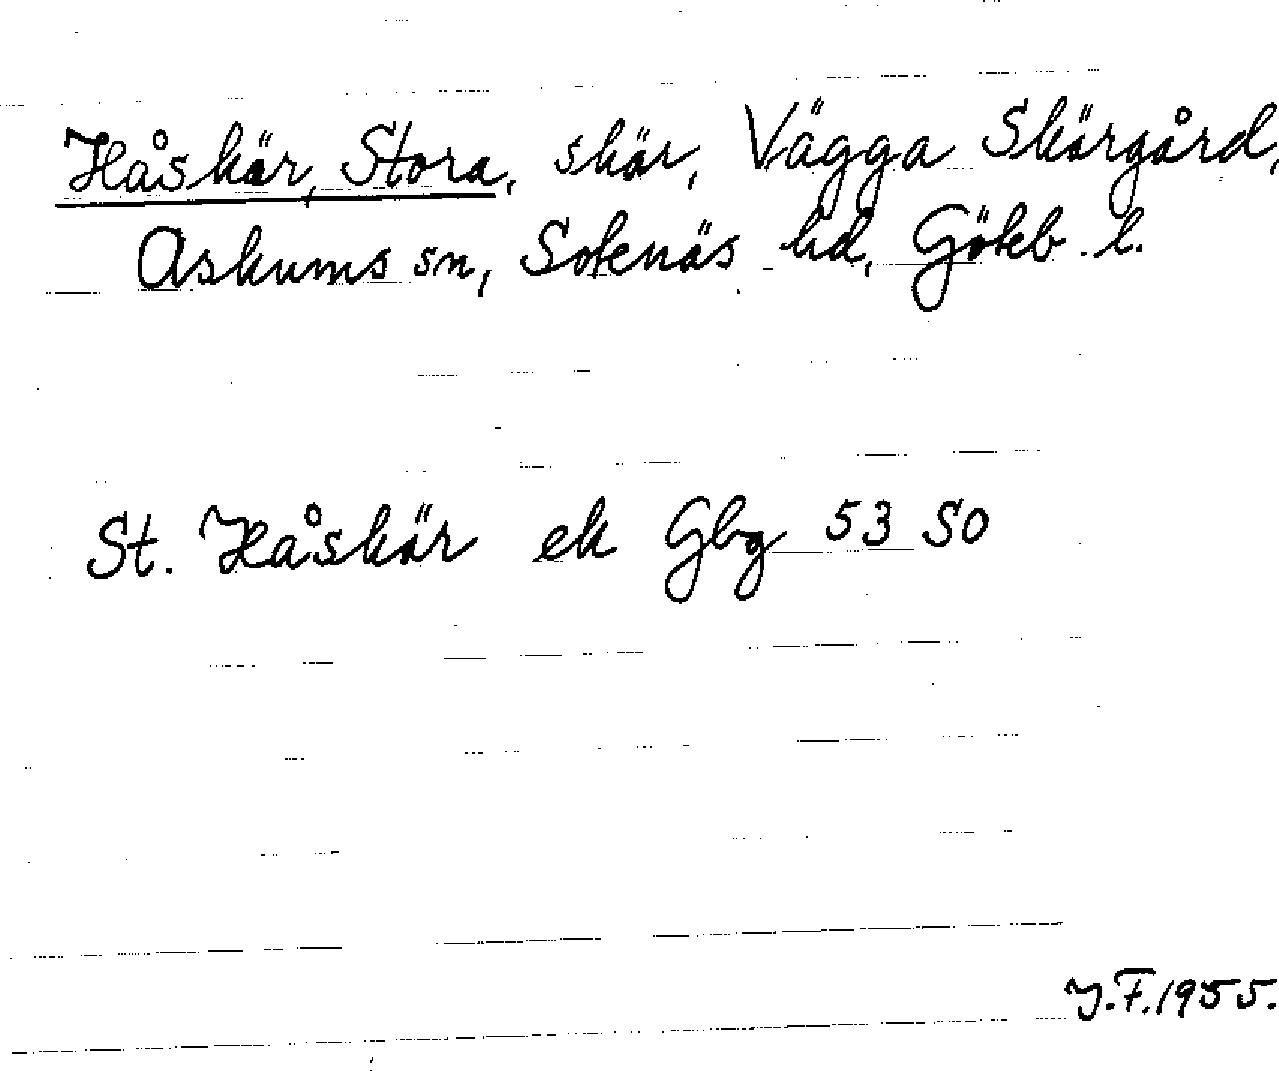 Håskär, Stora, skär, Vägga Skärgård,
Askums sn, Sotenäs hd, Göteb. l.
St. Håskär ek Gbg 53 SO
J.F. 1955.